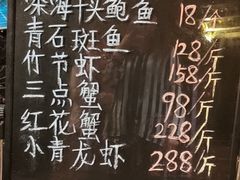 深海十头鲍鱼 18/个
青石斑鱼 128/斤
竹节虾 158/斤
三点蟹 98/斤
红花蟹 228/斤
小青龙虾 288/斤